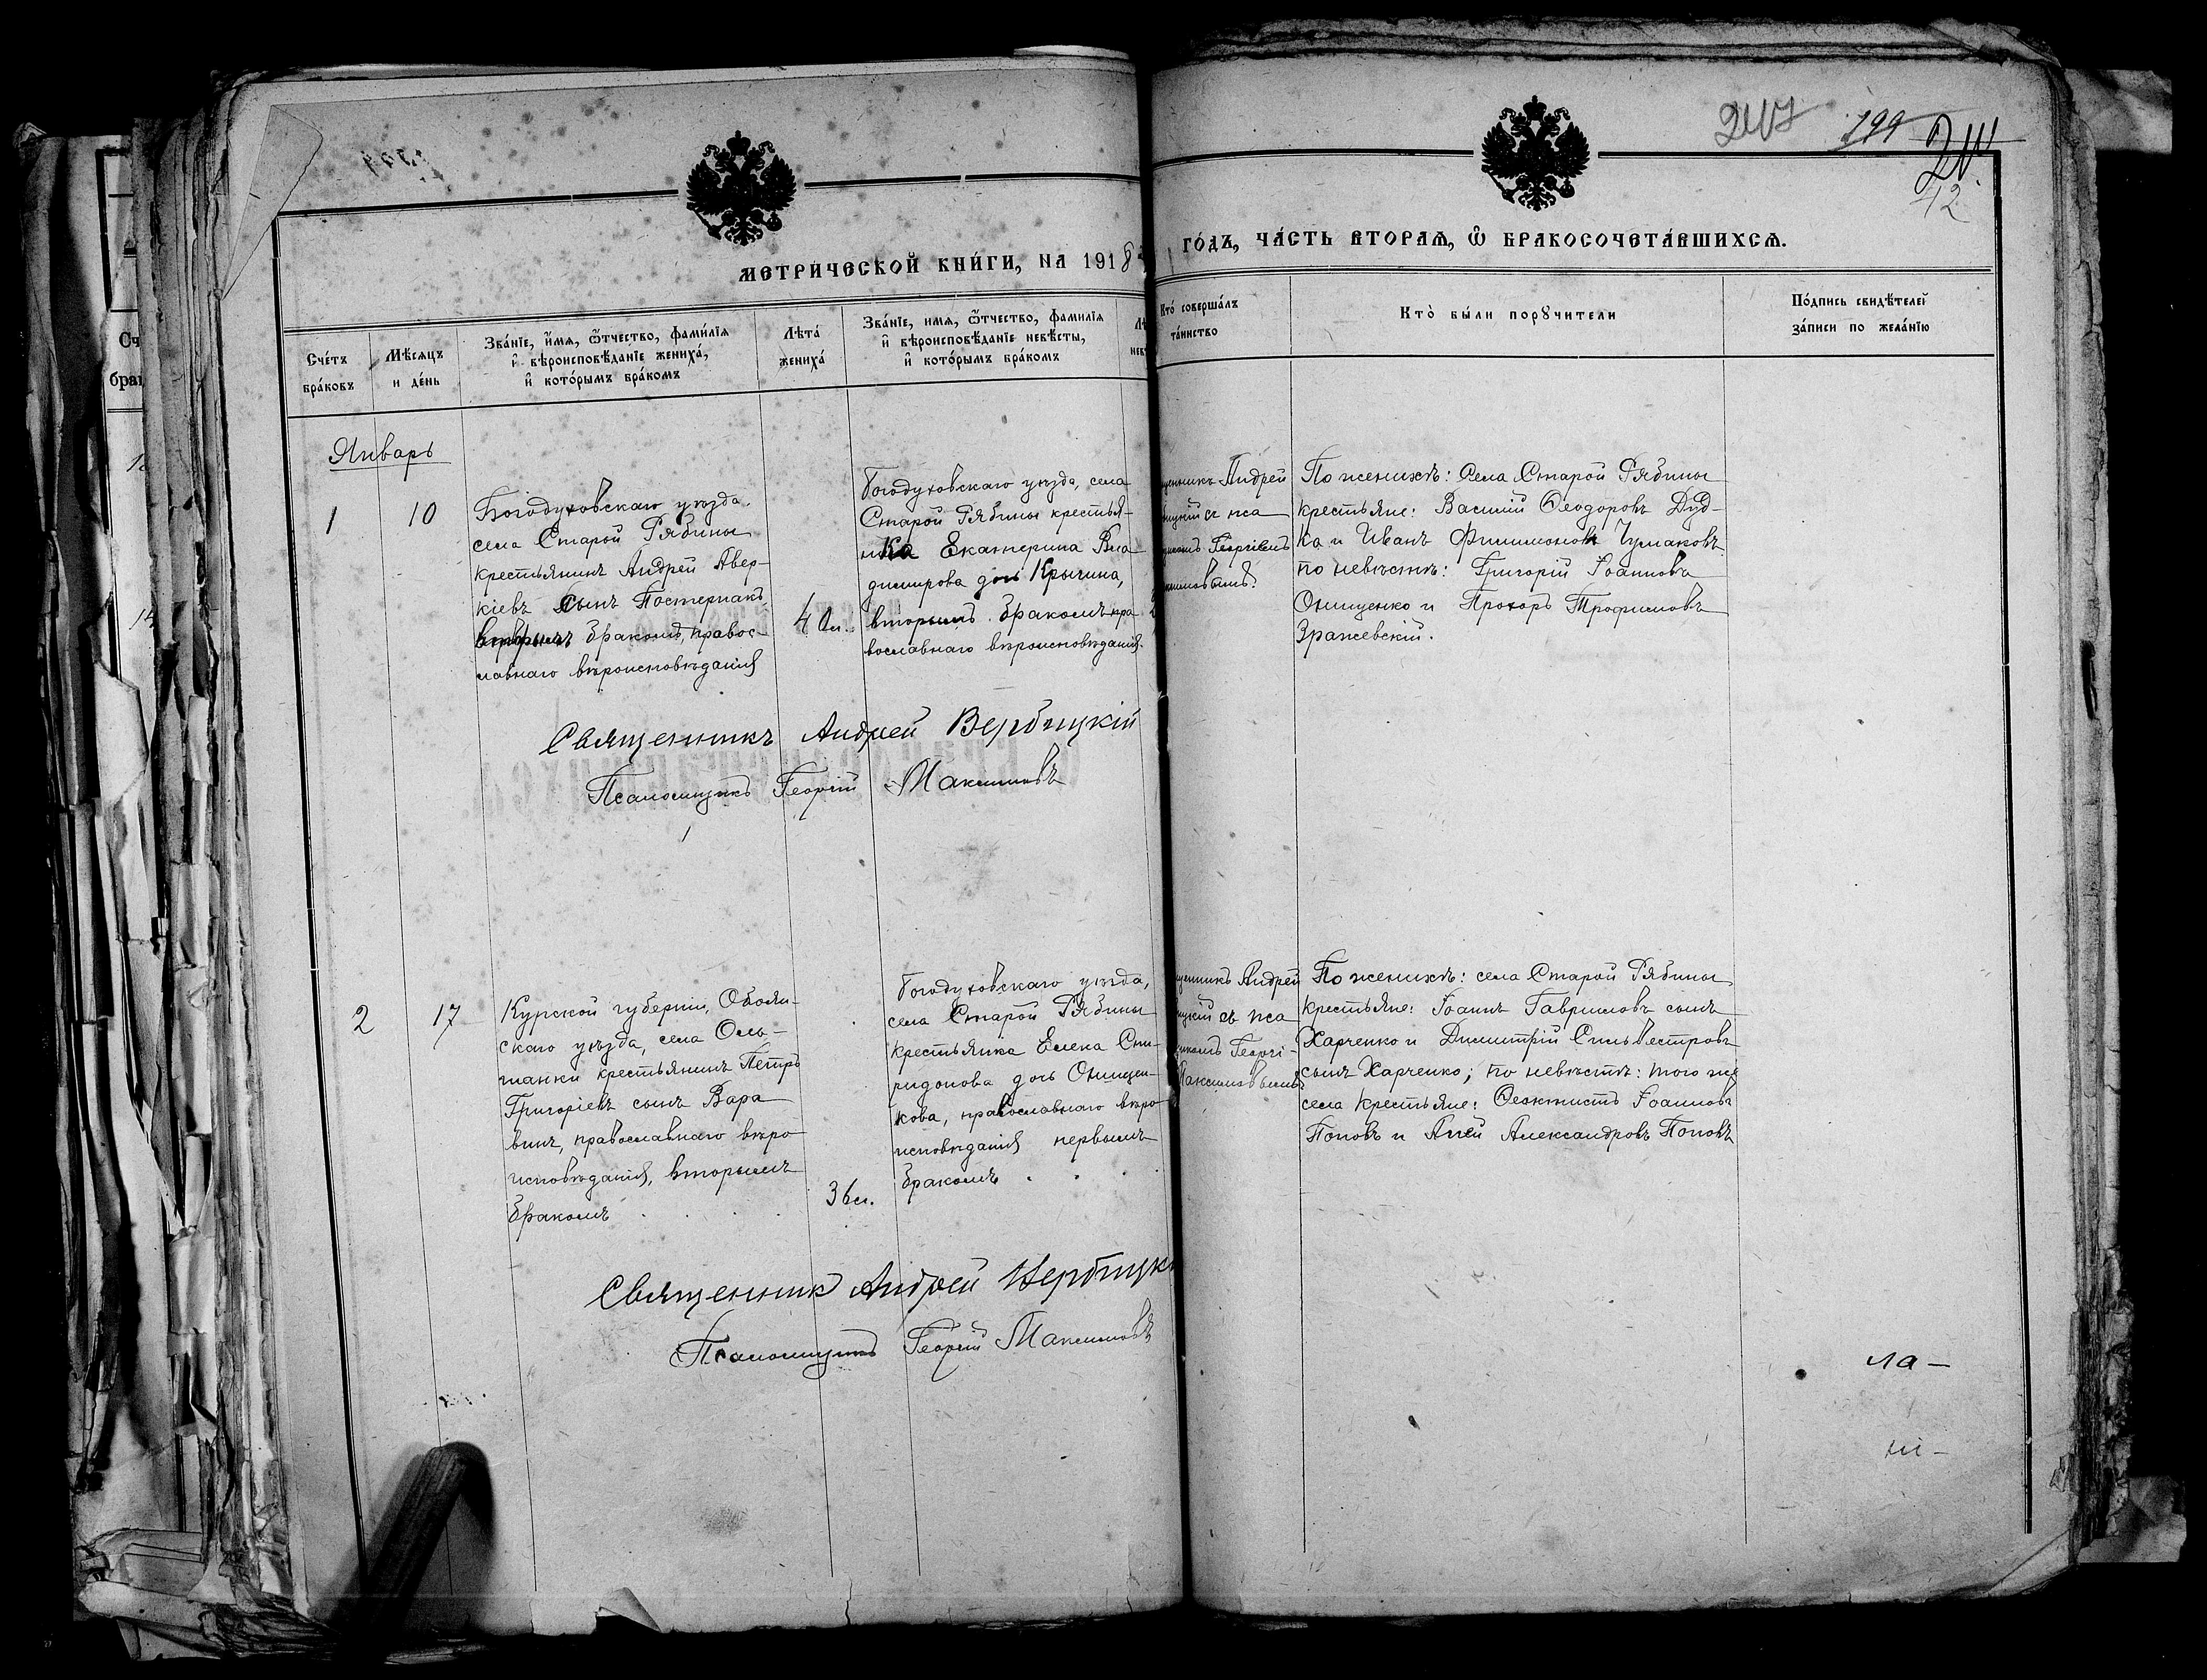 199
12
МЕТРИЧЕСКОЙ КНИ́ГИ, НА 1918
ГО́ДЪ, ЧА́СТЬ ВТОРАѦ, Ѡ҆ БРАКОСОЧЕТА́ВШИХСѦ.
Сче́тъ бра́ковъ
Мѣсяцъ и де́нь
Зва́нїе, и҆́мѧ, ѻ҆́тчество, фами́лїѧ
и҆ вѣроисповѣ́данїе жениха́,
и҆ кото́рымъ бра́комъ
Лѣта̀ жениха́
Зва́нїе, имѧ, ѻ҆́тчество, фами́лїѧ
и҆ вѣроисповѣ́данїе невѣ́сты,
и҆ кото́рымъ бра́комъ
Кто́ соверша́лъ
та́инство
Кто̀ бы́ли порꙋчители
По́дпись свидѣ́телей
за́писи по жела́нїю
Январь
1
10
Богодуховскаго уѣзда,
села Старой Рябины
крестьянинъ Андрей Авер-
кіевъ сынъ Постернакъ,
вторымъ бракомъ, правос-
лавнаго вѣроисповѣданія
40л.
Богодуховскаго уѣзда, села
Старой Рябины крестья-
нка Екатерина Вла-
димирова дочь Крычина,
вторымъ бракомъ пра-
вославнаго вѣроисповѣданія.
Андрей
съ пса
Георгіемъ
По женихѣ: Села Старой Рябины
крестьяне: Василій Ѳеодоровъ Дуд-
ка и Иванъ Филимоновъ Чумаковъ
по невѣстѣ: Григорій Іоанновъ
Онищенко и Прохоръ Трофимовъ
Зражевскій.
Священникъ Андрей Вербицкій
Псаломщикъ Георгій Максимовъ
2
17
Курской губерніи, Обоян-
скаго уѣзда, села Оль-
шанки крестьянинъ Петръ
Григоріевъ сынъ Вара
винъ, православнаго вѣро
исповѣданія, вторымъ
бракомъ
36л.
Богодуховскаго уѣзда,
села Старой Рябины
крестьянка Елена Спи-
ридонова дочь Онищен-
кова, православнаго вѣро
исповѣданія первымъ
бракомъ
Андрей
съ пса
Георгі-
Максимовымъ
По женихѣ: села Старой Рябины
крестьяне: Іоаннъ Гавриловъ сынъ
Харченко и Димитрій Сильвестровъ
сынъ Харченко; по невѣстѣ: того же
села крестьяне: Ѳеоктистъ Іоанновъ
Поповъ и Александровъ Поповъ
Священник Андрей Вербицкі
Псаломщикъ Георгій Максимовъ
ла-